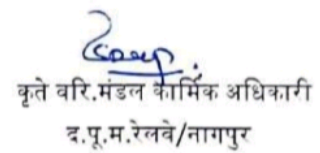 कृते वरि.मंडल कार्मिक अधिकारी
द.पू.म.रेलवे/नागपुर